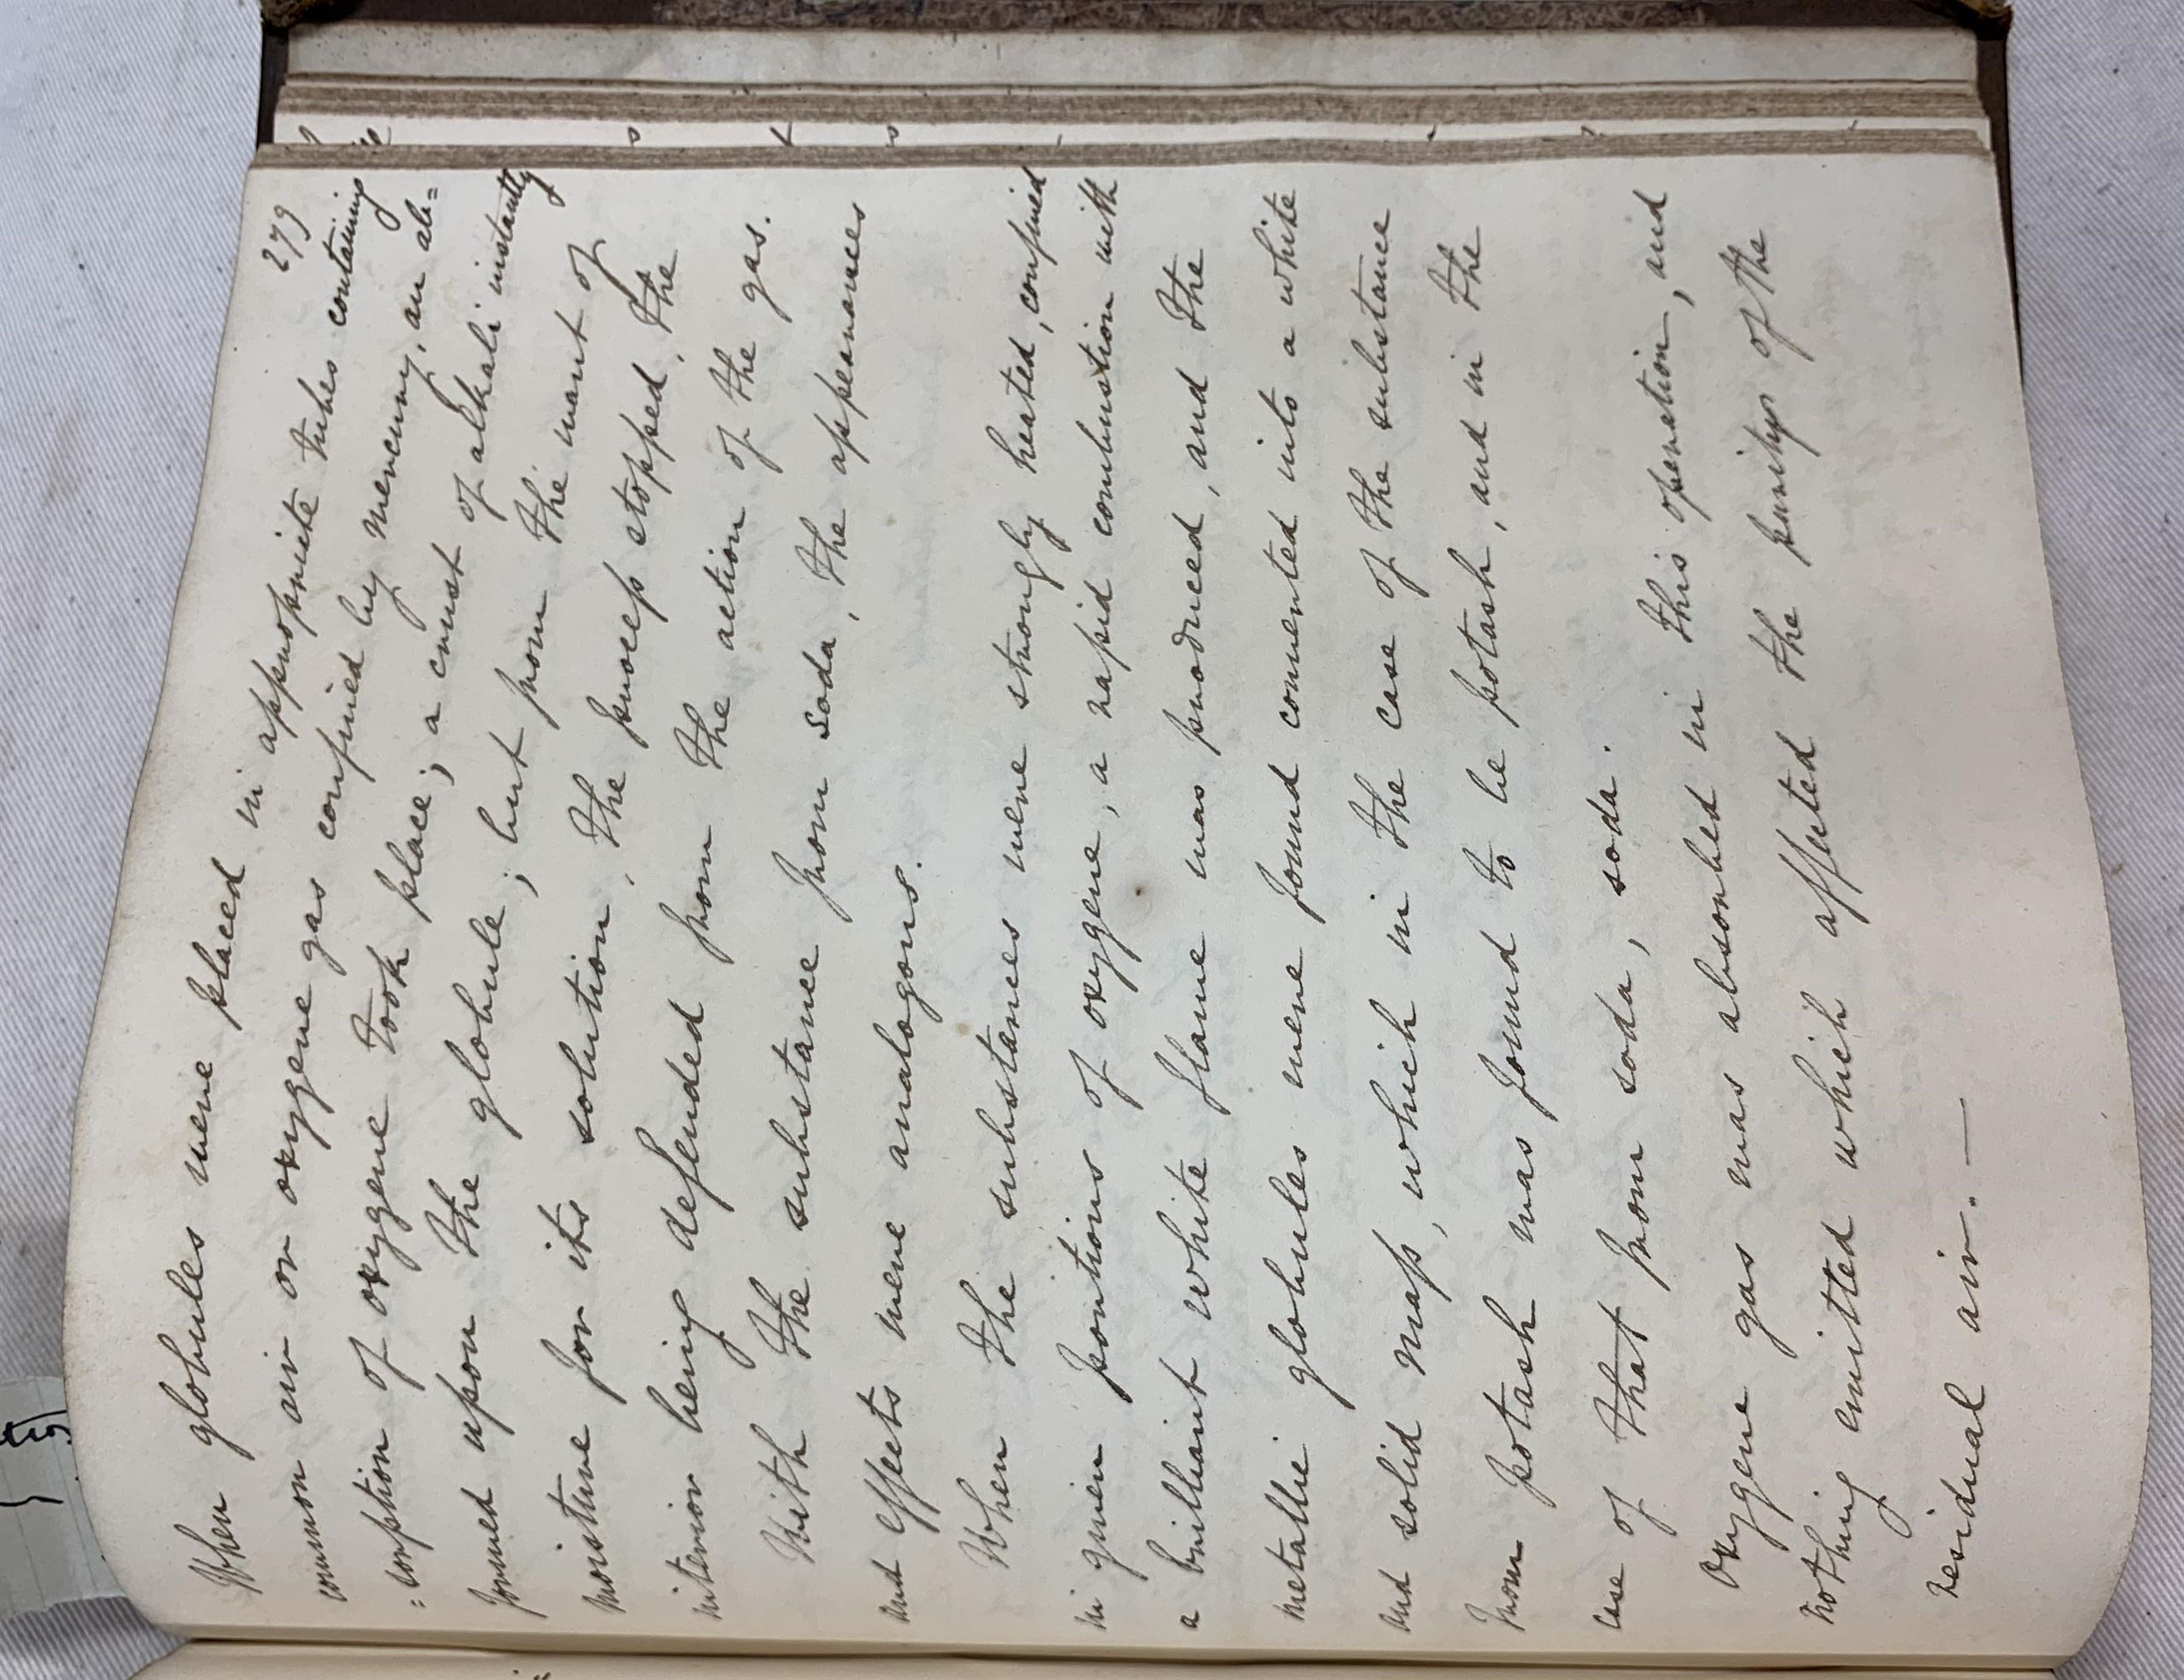 279
When globules were placed in appropriate tubes containing
common air or oxygene gas confined by mercury, an ab=
=sorption of oxygene took place; a crust of alkali instantly
formed upon the globule; but from the want of
moisture for its solution, the process stopped, the
interior being defended from the action of the gas.
With the substance from soda, the appearances
and effects were analogous.
When the substances were strongly heated, confined
in given portions of oxygene, a rapid combustion with
a brilliant white flame was produced, and the
metallic globules were found converted into a white
and solid mass, which in the case of the substance
from potash was found to be potash, and in the
case of that from soda, soda.
Oxygene gas was absorbed in this operation, and
nothing emitted which affected the purity of the
residual air. —